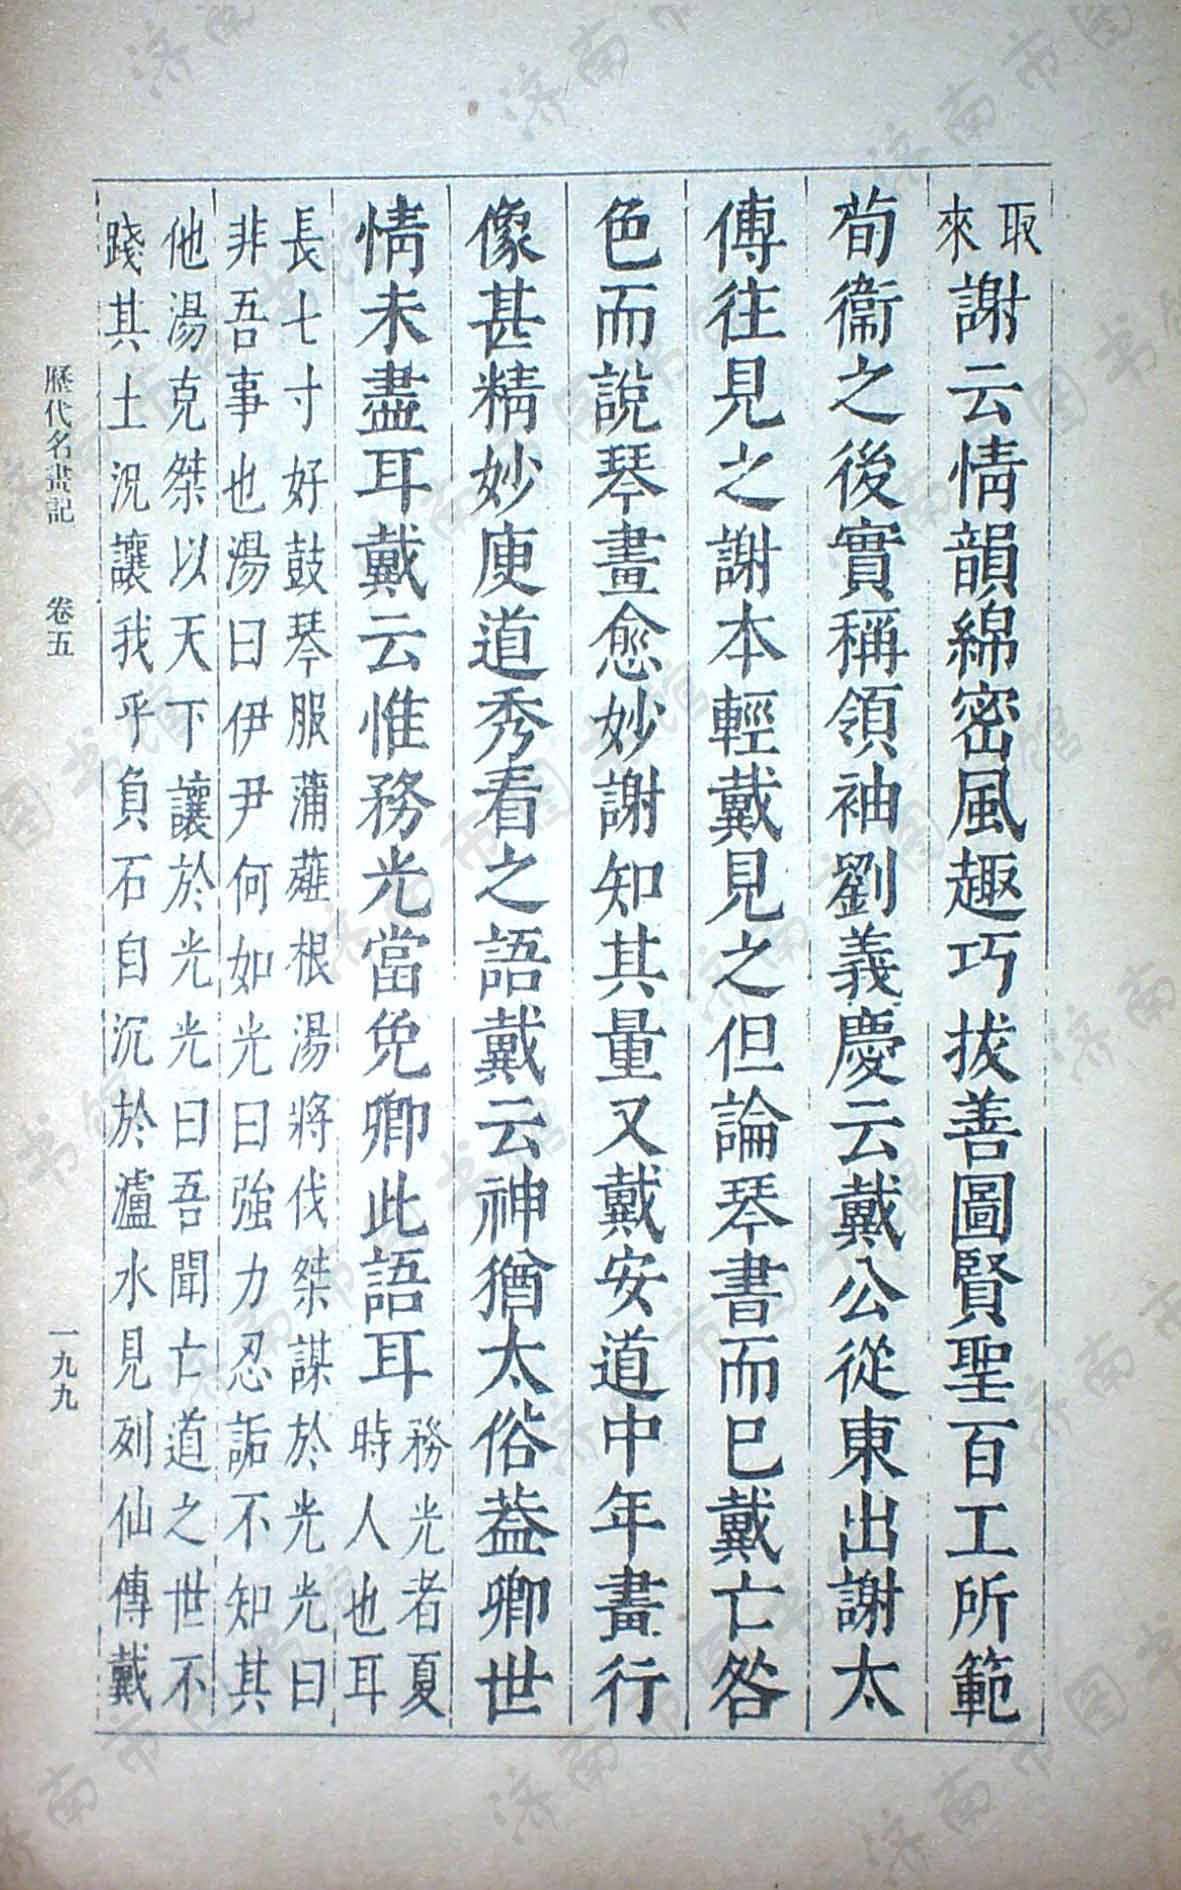 取
來
謝云情韻綿密風趣巧拔善圖賢聖百工所範
荀衞之後實稱領袖劉義慶云戴公從東出謝太
傅往見之謝本輕戴見之但論琴書而已戴亡咎
色而說琴畫愈妙謝知其量又戴安道中年畫行
像甚精妙庾道秀看之語戴云神猶太俗葢卿世
情未盡耳戴云惟務光當免卿此語耳
務光者夏
時人也耳
長七寸好鼓琴服蒲薤根湯將伐桀謀於光光曰
非吾事也湯曰伊尹何如光曰強力忍詬不知其
他湯克桀以天下讓於光光曰吾聞亡道之世不
踐其土況讓我乎負石自沉於瀘水見列仙傳戴
歷代名畫記 卷五
一九九
济南市图书馆